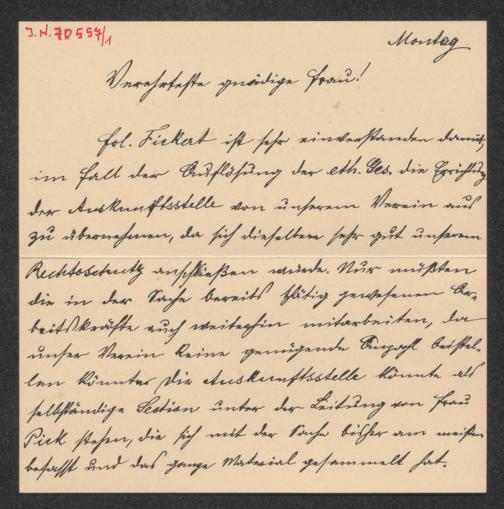 J.N. 70557/1
Montag
Verehrteste gnädige Frau!
Frl. Fickert ist sehr einverstanden damit,
im Falle der Auflösung der eth. Ges. die Errichtung
der Auskunftsstelle von unserem Verein aus
zu übernehmen, da sich dieselbe sehr gut unserem
Rechtsschutz anschließen würde. Nur müßten
die in der Sache bereits thätig gewesenen Ar-
beitskräfte auch weiterhin mitarbeiten, da
unser Verein keine genügende Anzahl beistel-
len könnte. Die Auskunftsstelle könnte als
selbständige Section unter der Leitung von Frau
Pick stehen, die sich mit der Sache bisher am meisten
befaßt und das ganze Material gesammelt hat.